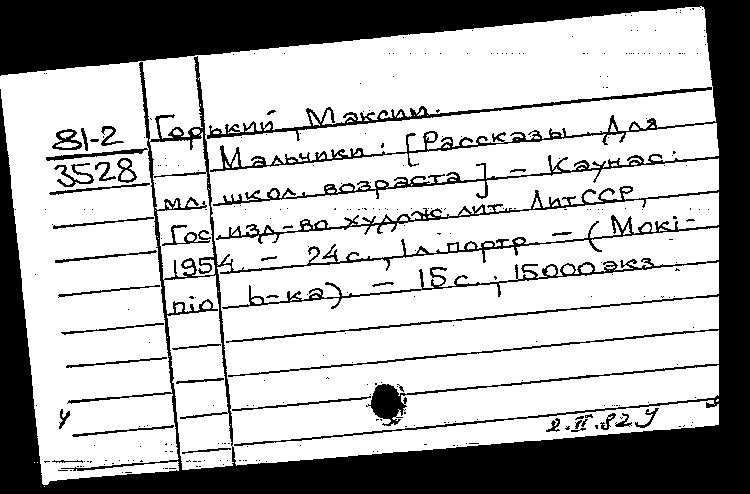 81-2
3528
Горький, Максим.
Мальчики: [Рассказы. Для
мл. школ. возраста]. - Каунас:
Гос. изд-во худож. лит. ЛитССР,
1954. - 24 с., 1 л. портр. - (Мокі-
nio b-ка). - 15 с.; 15000 экз.
у
2.II.82.у